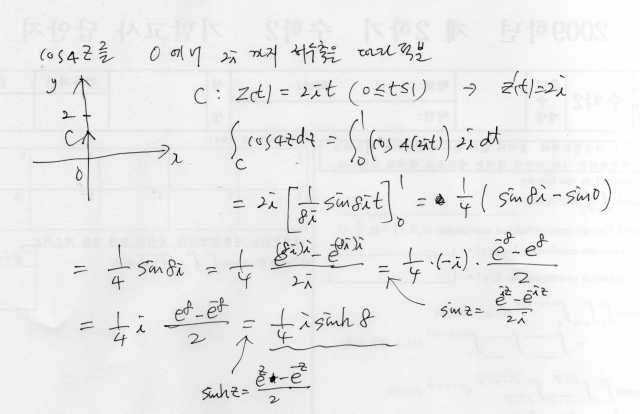 cos4z를 0에서 2i 까지 허수축을 따라 적분
y
2
C
0
x
C : z(t) = 2it (0≤t≤1) → z'(t)=2i
∫_C cos4z dz = ∫_0^1 (cos 4(2it)) 2i dt
= 2i [ 1/(8i) sin8it ]_0^1 = 1/4 ( sin8i - sin0 )
= 1/4 sin8i = 1/4 (e^{(8i)i} - e^{-(8i)i})/(2i) = 1/4 · (-i) · (e^{-8} - e^{8})/2
sin z = (e^{iz} - e^{-iz})/(2i)
= 1/4 i (e^{8} - e^{-8})/2 = 1/4 i sinh 8
sinh z = (e^{z} - e^{-z})/2